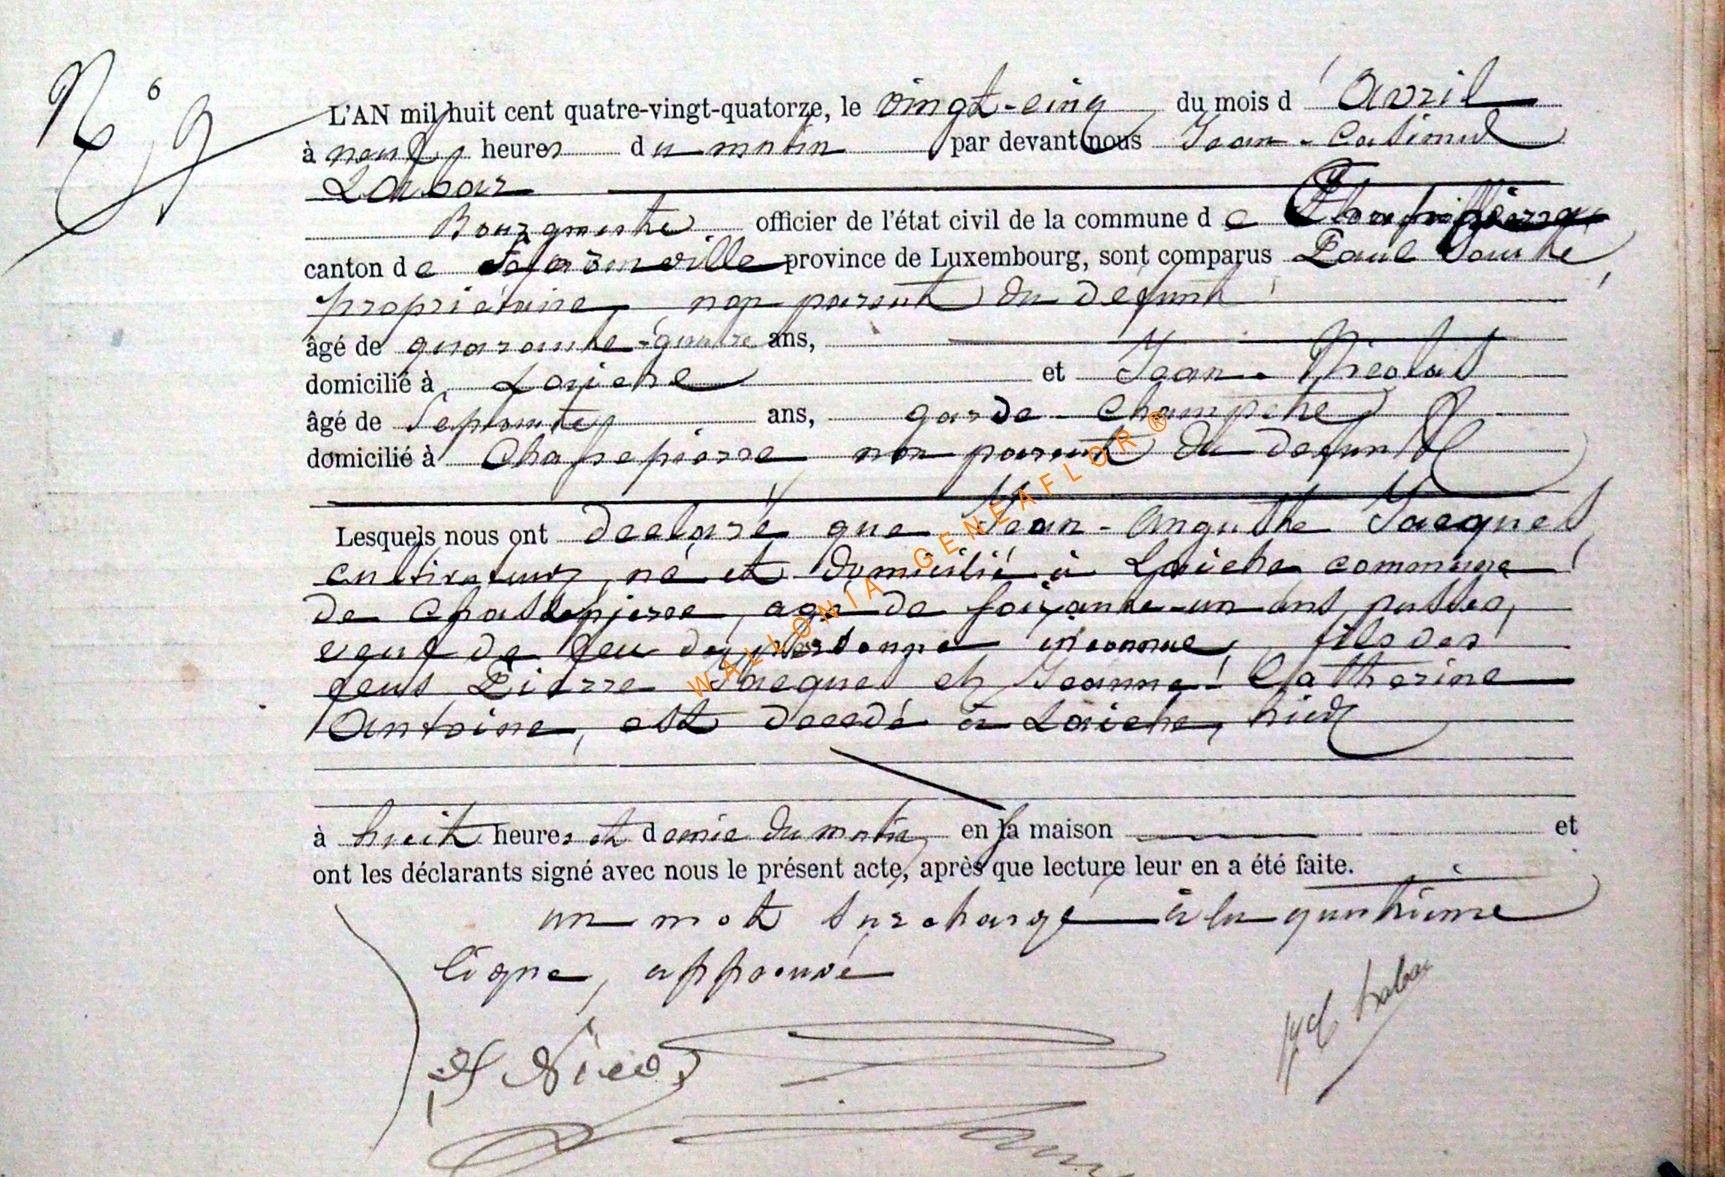 N° 9
L'AN mil huit cent quatre-vingt-quatorze, le vingt-cinq du mois d'Avril
à neuf heures du matin par devant nous Jean-Casimir
Labar
Bourgmestre officier de l'état civil de la commune de
canton de province de Luxembourg, sont comparus Paul
propriétaire, non parent du defunt
âgé de quarante-quatre ans,
domicilié à Laiche et Jean-Nicolas
âgé de Septante ans, garde-Champêtre
domicilié à Chassepierre non parent du defunt
Lesquels nous ont declaré que Jean-Auguste Jacques
cultivateur, né et domicilié à Laiche commune
de Chassepierre, agé de soixante-un ans, passés,
veuf de feu de personne inconnue, fils des
feus Pierre Jacques et Jeanne Catherine
Antoine, est decedé à Laiche, hier
à huit heures et demie du matin, en sa maison et
ont les déclarants signé avec nous le présent acte, après que lecture leur en a été faite.
un mot surchargé à la quatrième
ligne, approuvé
J Nicolas
JC Labar
WALLONIA-GENEAFLOR ®